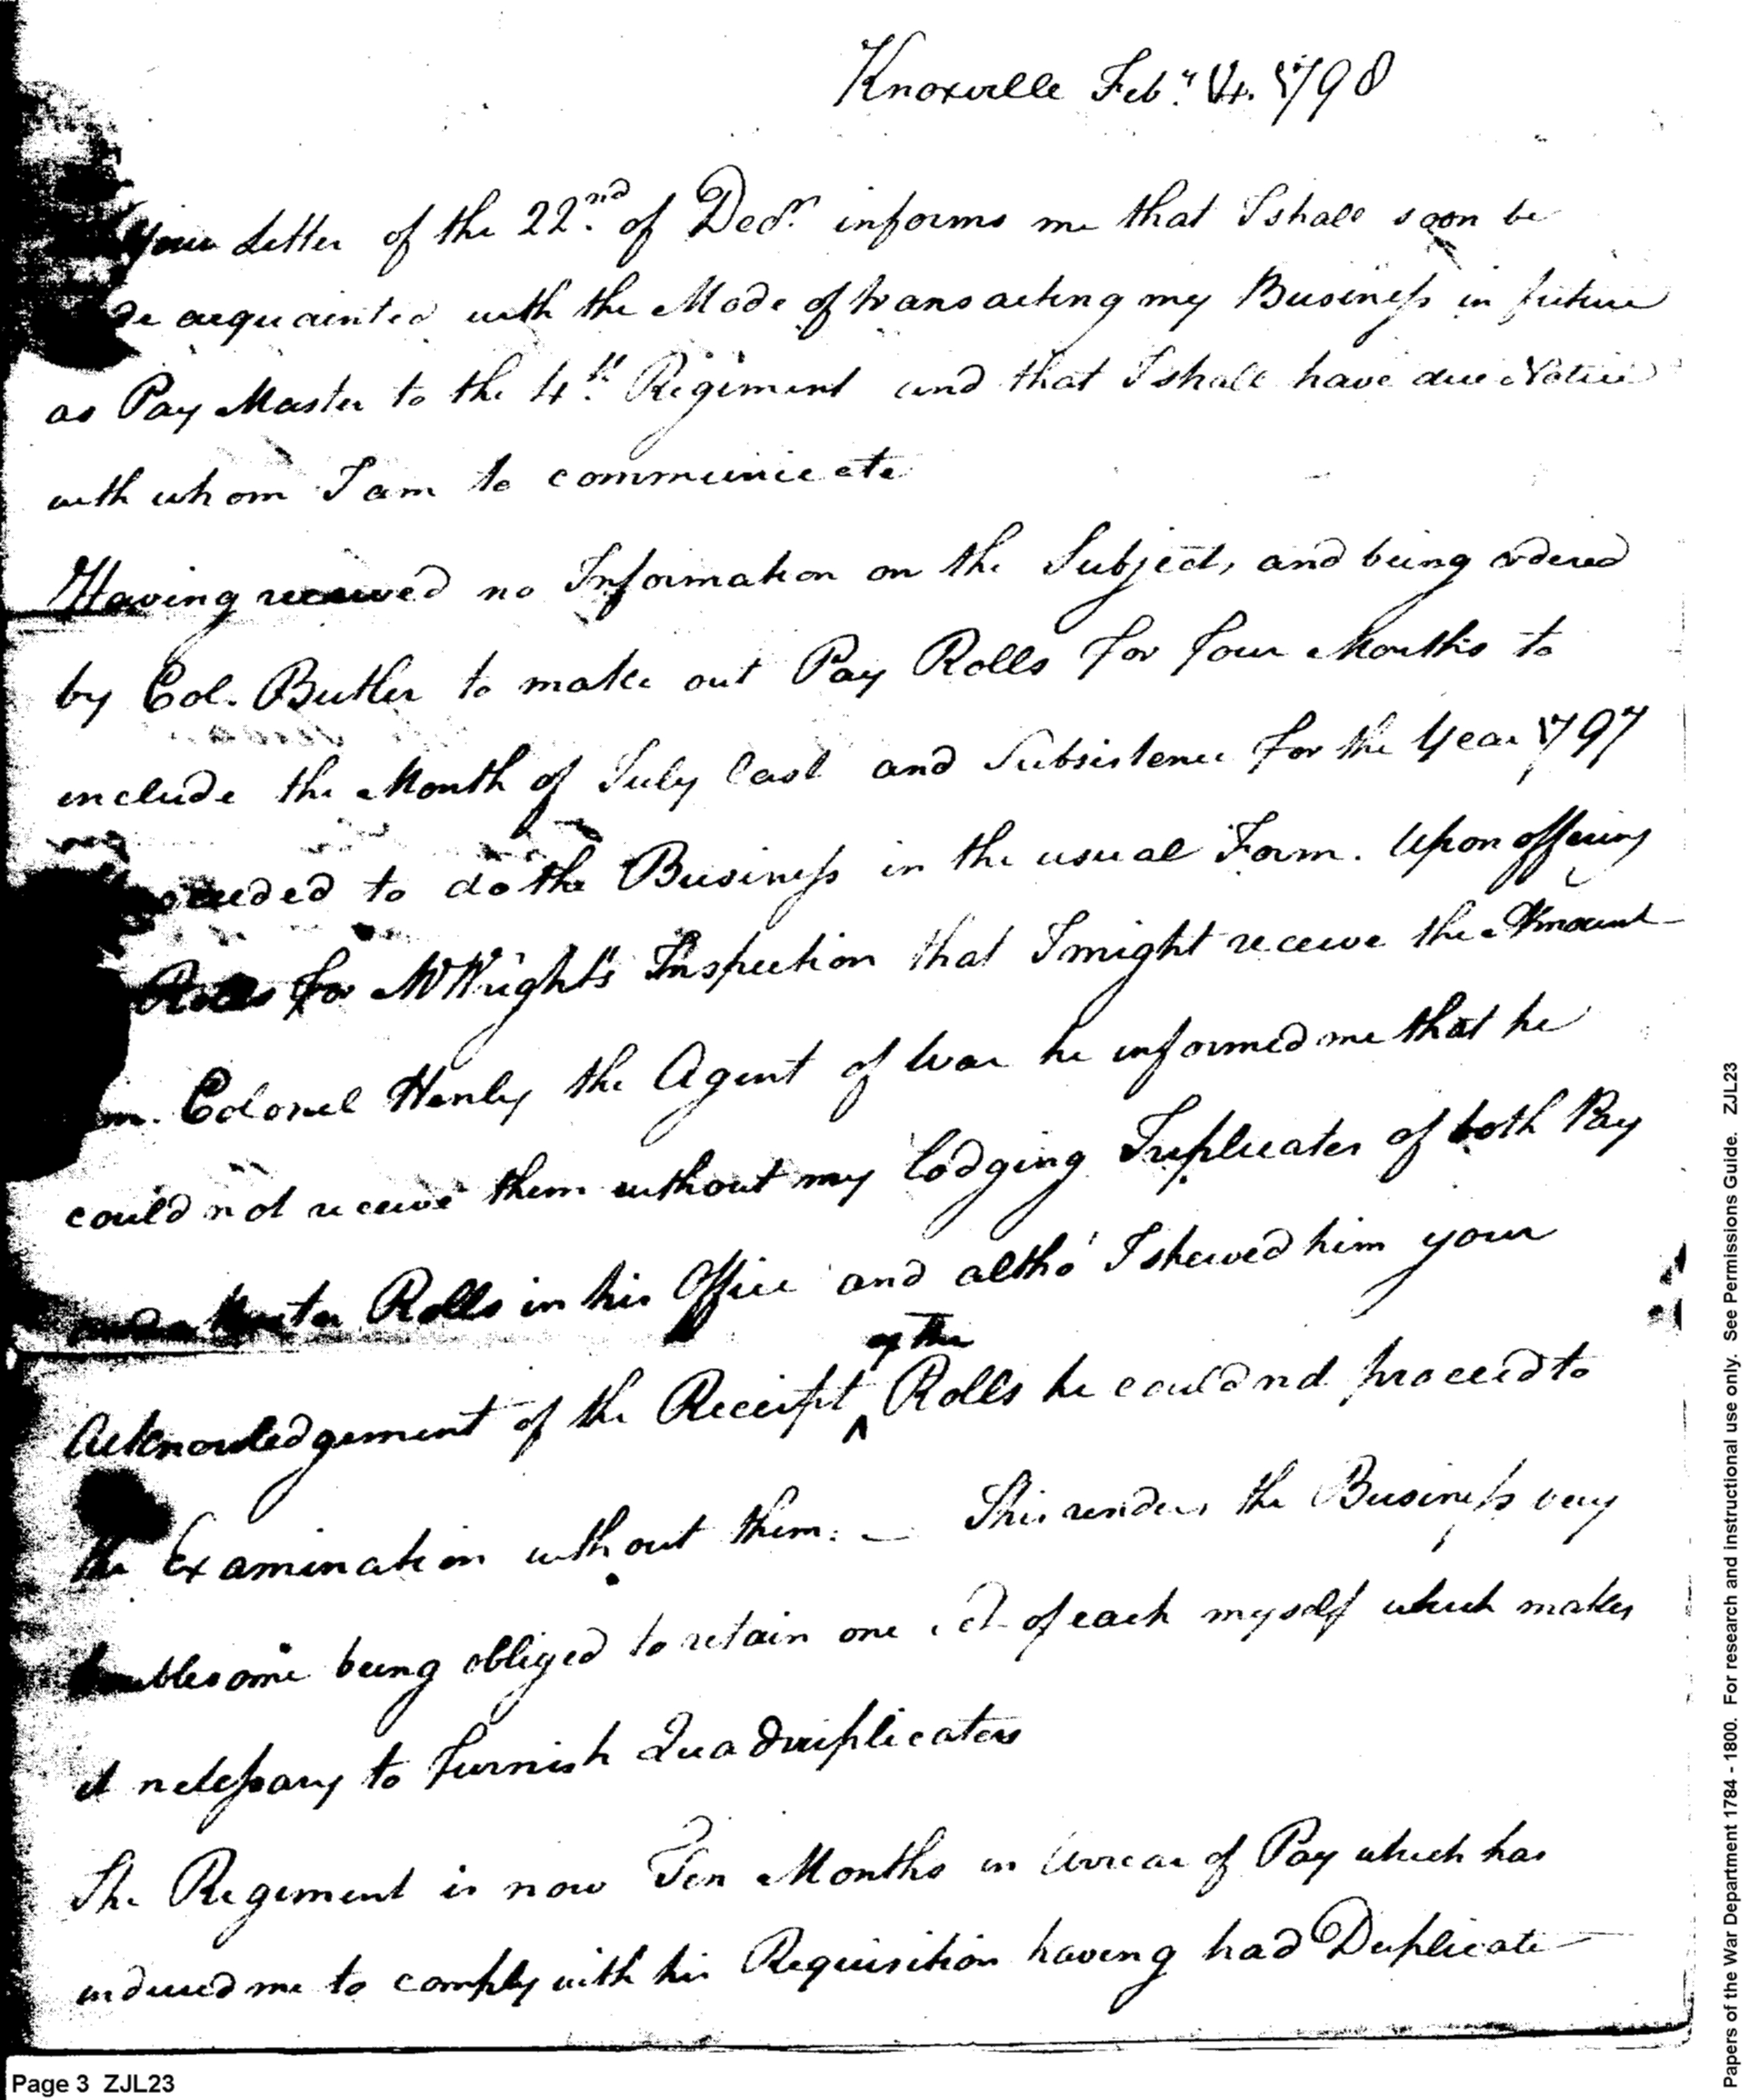 Knoxville Feb.y 14. 1798
Your Letter of the 22.nd of Decr. informs me that I shall soon be
de acquainted with the Mode of transacting my Business in future
as Pay Master to the 4.th Regiment and that I shall have due Notice
with whom I am to communicate
Having received no Information on the Subject, and being ordered
by Col. Butler to make out Pay Rolls for four Months to
include the Month of July last and Subsistence for the Year 1797
ceeded to do the Business in the usual Form. Upon offering
Rolls for Mr Wright's Inspection that I might receive the Amount
m. Colonel Henly the Agent of War he informed me that he
could not receive them without my lodging Triplicates of both Pay
and Muster Rolls in his Office and altho' I shewed him your
of the
Acknowledgement of the Receipt ^ Rolls he could not proceed to
the Examination without them. — This renders the Business very
troublesome being obliged to retain one set of each myself which makes
it necessary to furnish Quadruplicates
The Regiment is now Ten Months in Arrear of Pay which has
induced me to comply with his Requisition having had Duplicate
Page 3 ZJL23
Papers of the War Department 1784 - 1800. For research and instructional use only. See Permissions Guide. ZJL23